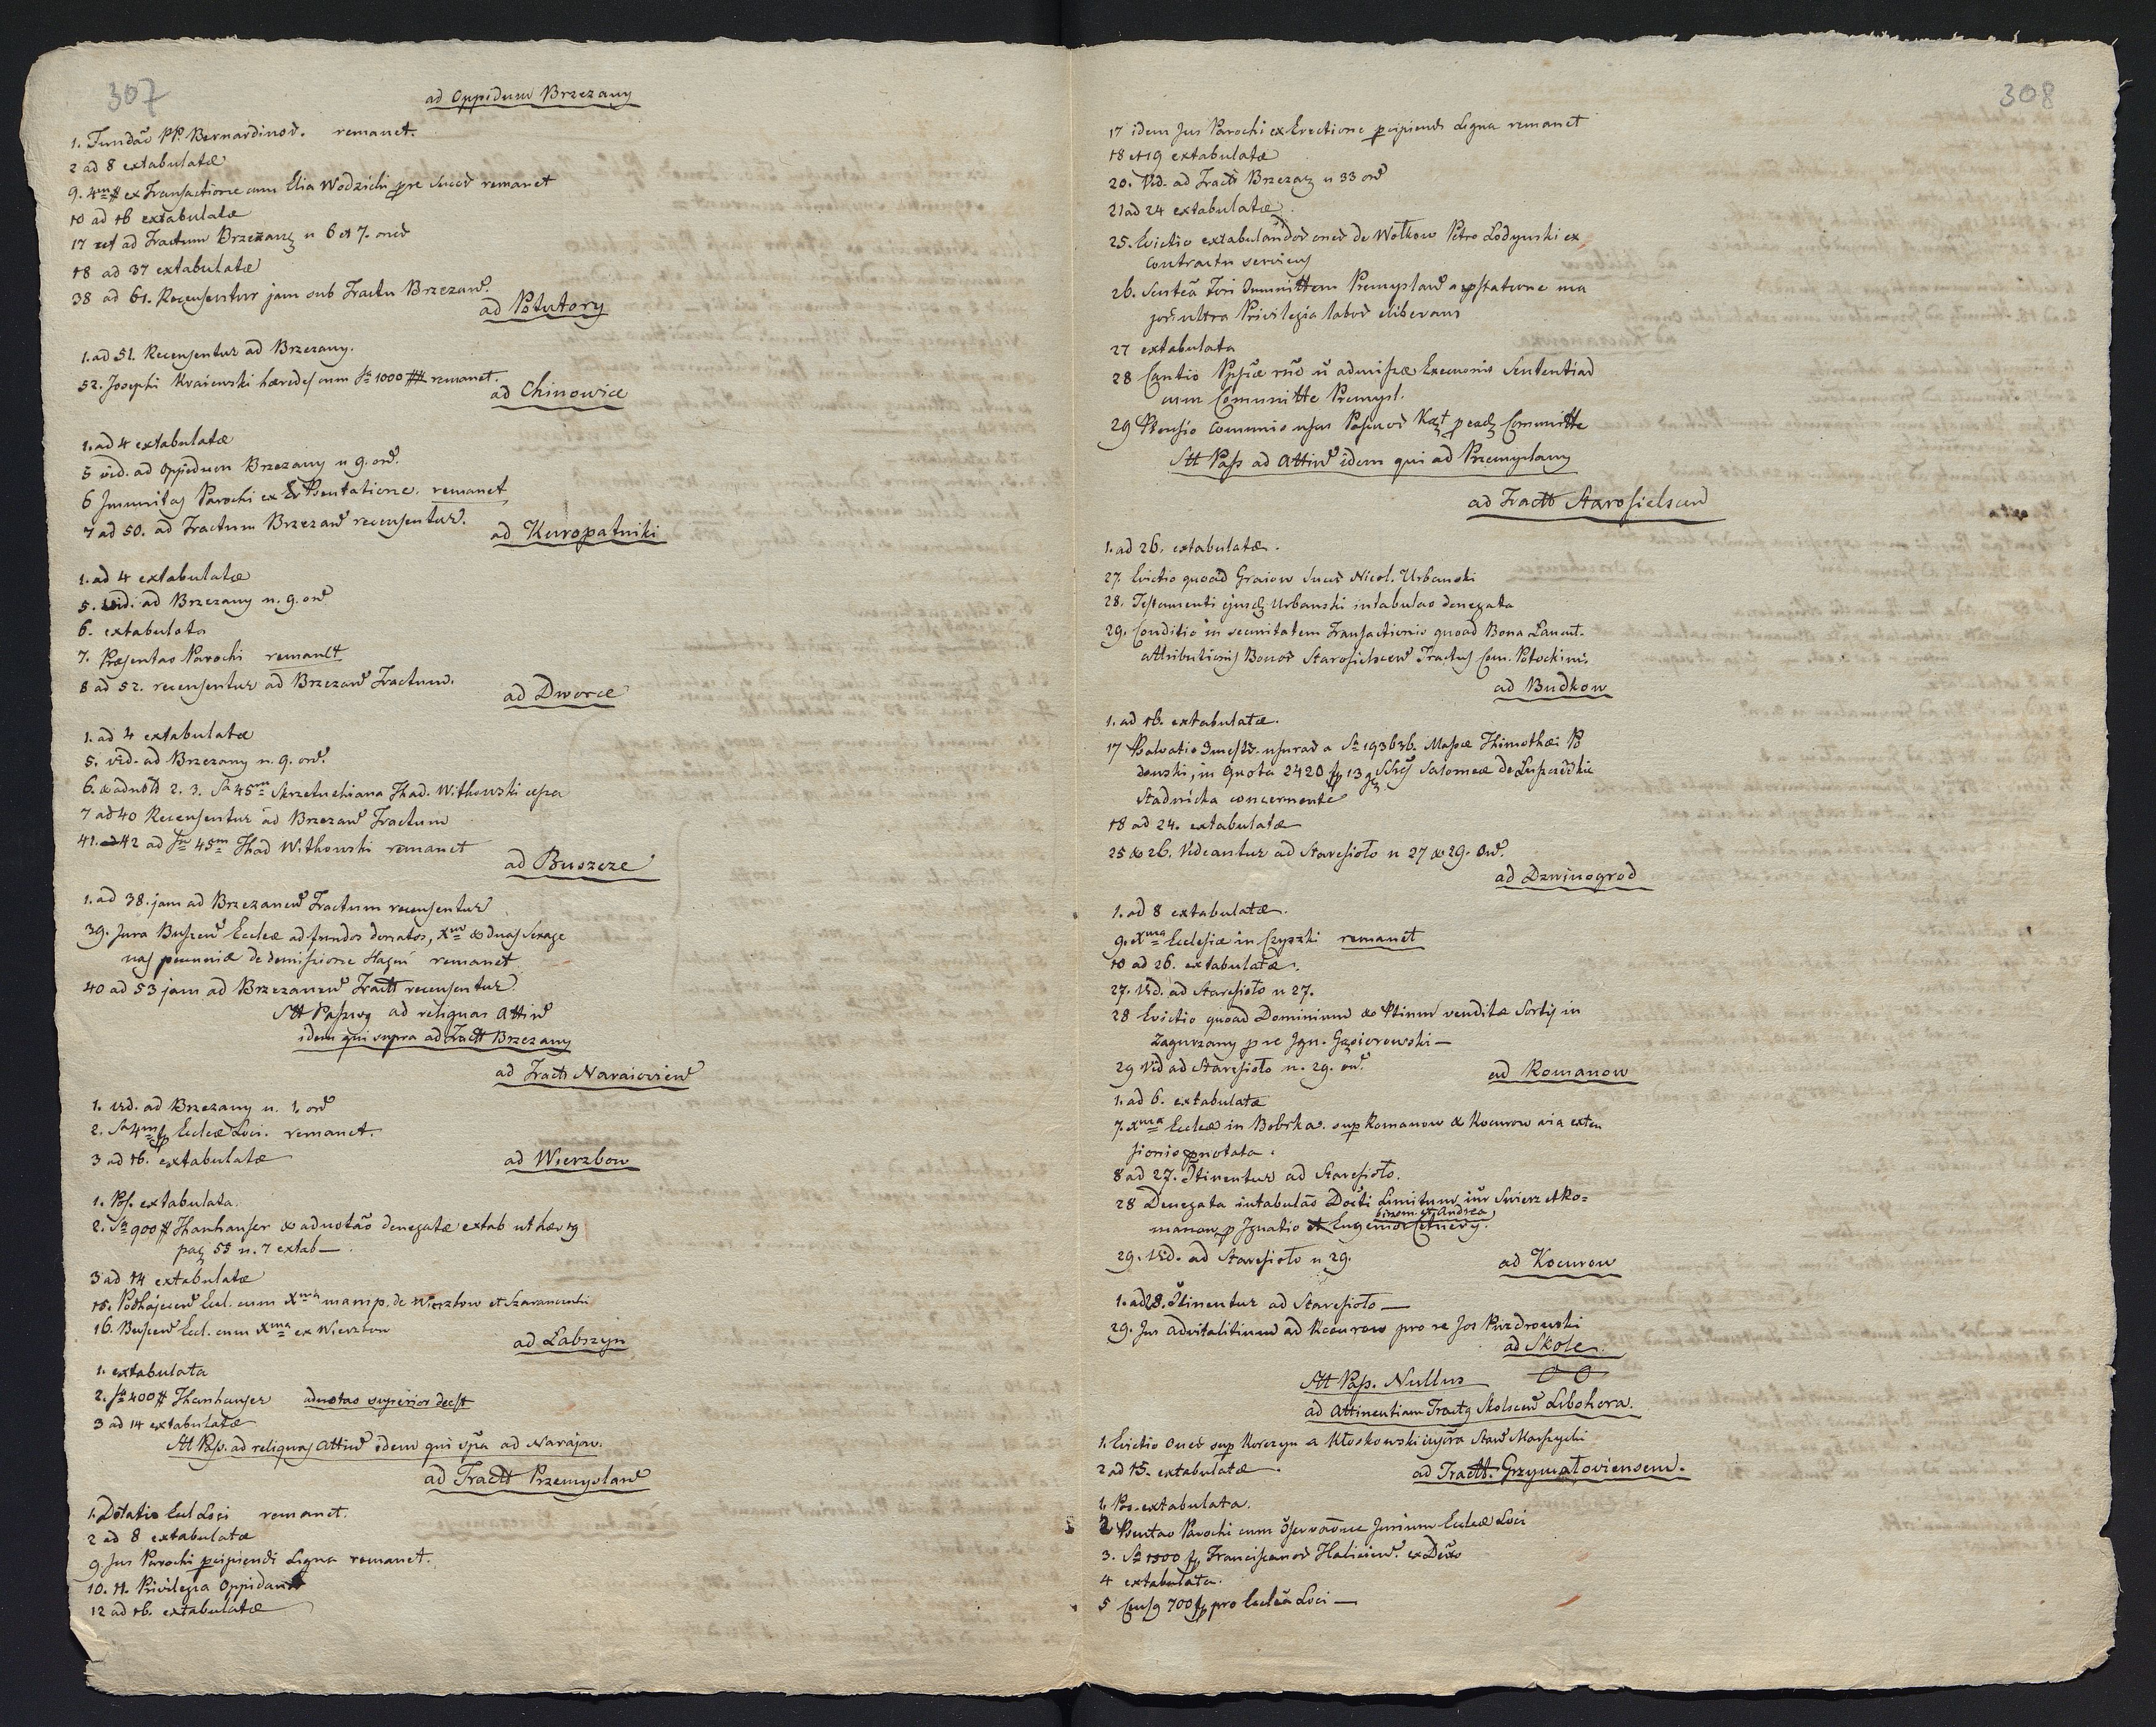 307
ad Oppidum Brzezany
1. Fundāo PP. Bernardinor. remanet.
2 ad 8 extabulatæ
9. 4m # ex Transactione cum Elia Wodzicki pre remanet
10 ad 16 extabulatæ
17 ad Tractum Brzezan n 6 et 7. oner
18 ad 37 extabulatæ
38 ad 61. Recensentur jam sub Tractu Brzezan.
ad Potutory
1. ad 51. Recensentur ad Brzezany.
52. Josephi Kraiewski hæredes cum Sa 1000 ## remanet.
ad Chinowice
1. ad 4 extabulatæ
5 vid. ad Oppidum Brzezany n 9. on.
6 Immunitas Parochi ex remanet
7 ad 50. ad Tractum Brzezan recensentur.
ad Kuropatniki
1. ad 4 extabulatæ
5. vid. ad Brzezany n. 9. on
6. extabulata
7. Præsentao Parochi remanet
8 ad 52. recensentur ad Brzezan Tractum.
ad Dworce
1. ad 4 extabulatæ
5. vid. ad Brzezany n. 9. on.
6. & adnotō 2. 3. Sa 45m Skrzetuchiana Thad. Witkowski
7 ad 40 Recensentur ad Brzezan Tractum
41. ad 42 ad Sm 45m Thad Witkowski remanet
ad Buszcze
1. ad 38. jam ad Brzezanen Tractum recensentur
39. Jura Buscen Eccleæ ad fundos donatos, Xm & duas Sexage
nas pecuniæ de demissione Stagni remanet
40 ad 53 jam ad Brzezanen Tractt recensentur
Stt ad reliquas Attin
idem qui supra ad Tractt Brzezany
ad Tractt Naraiovien
1. vid. ad Brzezany n. 1. on
2. Sa 4m f Eccleæ Loci. remanet.
3 ad 16. extabulatæ
ad Wierzbow
1. Pos. extabulata.
2. Sa 900 # Thanhauser & adnotāo denegatæ extab ut hær 19
pag 55 n. 7 extab —
3 ad 14 extabulatæ
15. Podhajecen Eccl. cum Xma manip. de Wierzbow et Szaranczuki
16. Buscen Eccl. cum Xma ex Wierzbow
ad Łabszyn
1. extabulata
2. Sa 400 # Thanhauser adnotao superior deest
3 ad 14 extabulatæ
Stt Pas. ad reliquas Attin idem qui spra ad Narajow.
ad Tractt Przemyslan
1. Dotatio Eccl Loci remanet.
2 ad 8 extabulatæ
9. Jus Parochi pcipiendi Ligna remanet.
10. 11. Privilegia
12 ad 16. extabulatæ
308
17 idem Jus Parochi ex Erectione pcipiendi Ligna remanet
18 et 19 extabulatæ
20. Vid. ad Tractt Brzezan n 33 on
21 ad 24 extabulatæ
25. Evictio extabulandor oner de Wołkow Petro Łodynski ex
contractu
26. Sentēa Fori Communittem Premyslan a pstatione ma
jor. ultra Privilegia labor eliberans
27 extabulata
28 Cautio admissæ Sententiad
cum Communitte Premysl.
29 Communis usus pead Communitte
Stt Pass ad Attin idem qui ad Przemyslany
ad Tractt Starosielscen
1. ad 26. extabulatæ.
27. Evictio quoad Graiow Nicol. Urbanski
28. Testamenti ejusd Urbanski intabulao denegata
29. Conditio in securitatem Transactionis quoad Bona Lancut.
attributionis Bonor Starosielscen Tractus Com. Potockimi.
ad Budkow
1. ad 16. extabulatæ.
17 usurar a Sa 193636. Massæ Thimothæi
danski, in Quota 2420 f 13 g Salomeæ de
Stadnicka concernente
18 ad 24. extabulatæ
25 & 26. Videantur ad Staresioło n 27 & 29. On.
ad Dzwinogrod
1. ad 8 extabulatæ.
9. Xma Ecclesiæ in Czyszki remanet
10 ad 26. extabulatæ.
27. Vid. ad Staresioło n 27.
28 Evictio quoad Dominium & venditæ Sortis in
Zagurzany p re Ign. Gąsiorowski —
29 Vid ad Staresioło n. 29. on.
ad Romanow
1. ad 6. extabulatæ
7. Xma Eccleæ in Bobrka. sup Romanow & Kocurow via exten
sionis pnotata.
8 ad 27. Ptinentur ad Staresioło.
28 Denegata intabulāo Docti Limitum inr Swierz et Ro=
manow p Ignatio et Eugenio Cetnery.
29. Vid. ad Staresioło n 29.
ad Kocurow
1. ad 28. Ptinentur ad Staresioło —
29. Jus advitalitium ad Kocurow pro re Jos Puzdrowski
ad Skole.
Stt Pas. Nullus
ad Attinentiam Tractq Skolscen Libohora.
1. Evictio Oner sup Korczyn a Kłoskowski Stan Marszycki
2 ad 15. extabulatæ.
ad Tractt. Grzymałoviensem.
1. Pos. extabulata.
2 Psentao Parochi cum Jurium Eccleæ Loci
3. Sa 1500 f Franciscanor Haliciens.
4 extabulata.
5 Cens 700 f pro Eccleā Loci —